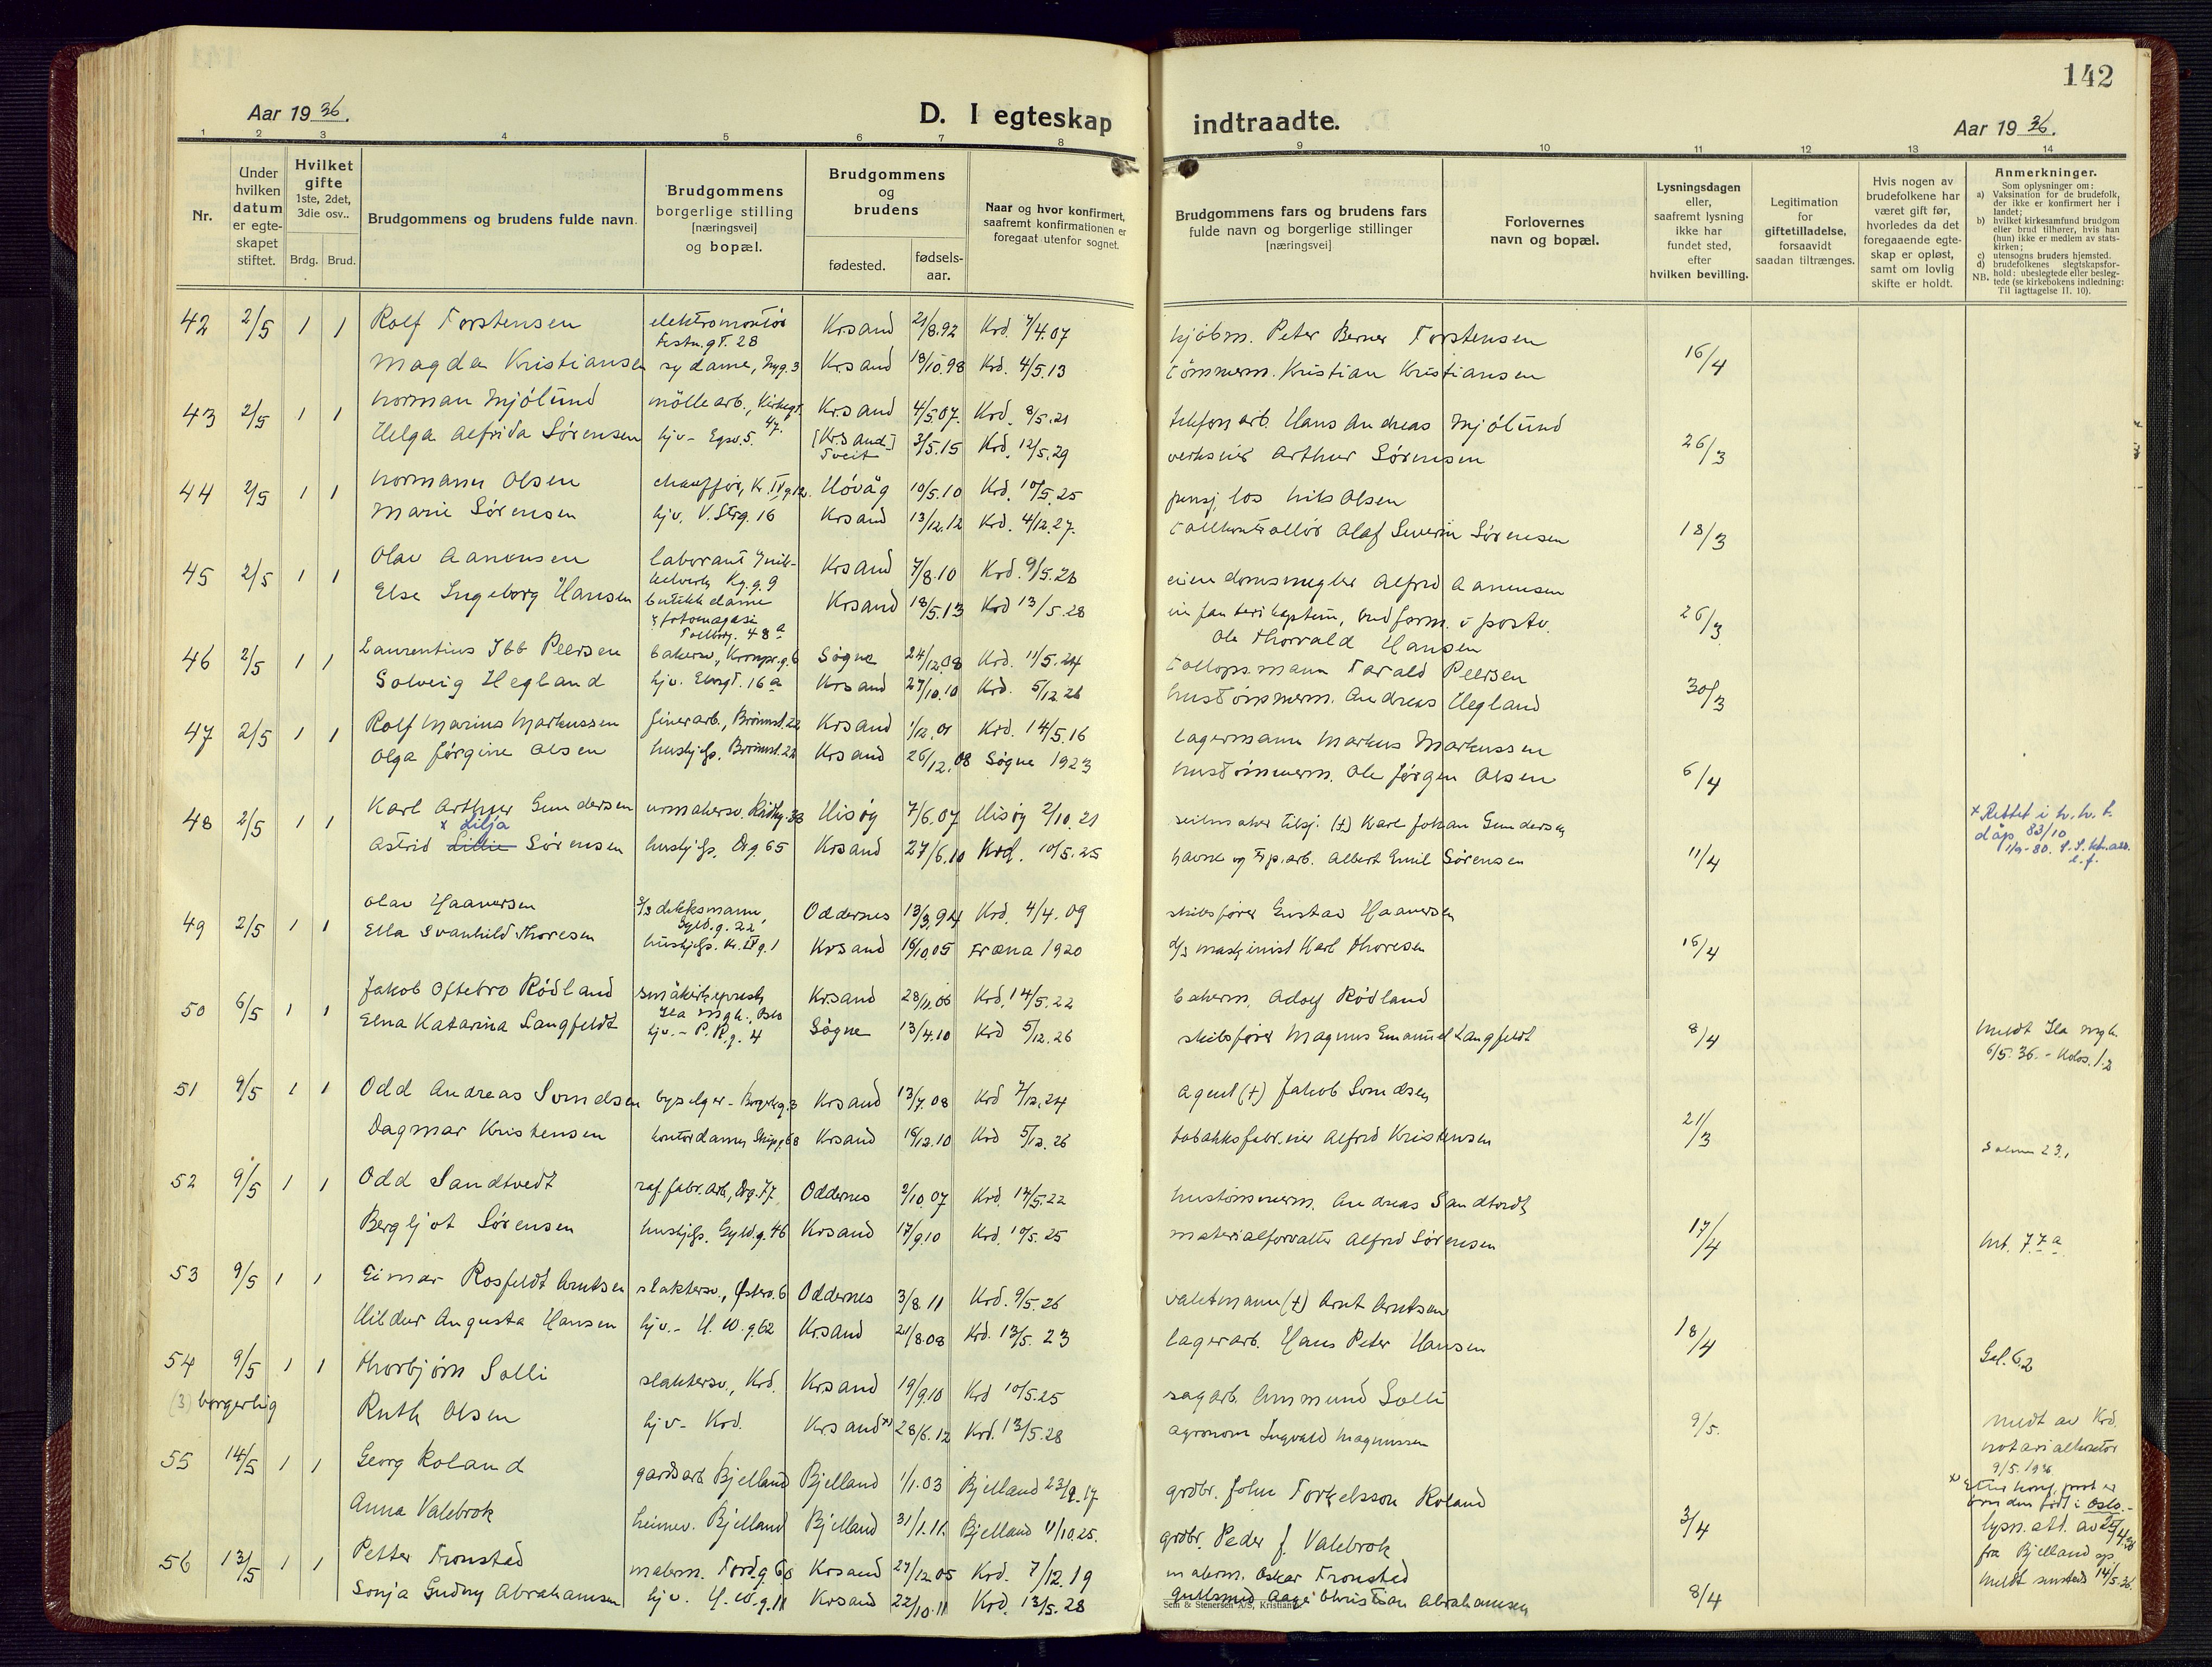 142
Aar 1936.
D. I egteskap indtraadte.
Aar 1936.
1 2 3 4 5 6 7 8 9 10 11 12 13 14
Nr.
Under hvilken datum er egteskapet stiftet.
Hvilket gifte 1ste, 2det, 3die osv..
Brdg. Brud.
Brudgommens og brudens fulde navn.
Brudgommens borgerlige stilling [næringsvei] og bopæl.
Brudgommens og brudens
fødested.
fødsels-aar.
Naar og hvor konfirmert, saafremt konfirmationen er foregaat utenfor sognet.
Brudgommens fars og brudens fars fulde navn og borgerlige stillinger [næringsvei]
Forlovernes navn og bopæl.
Lysningsdagen eller, saafremt lysning ikke har fundet sted, efter hvilken bevilling.
Legitimation for giftetilladelse, forsaavidt saadan tiltrænges.
Hvis nogen av brudefolkene har været gift før, hvorledes da det foregaaende egteskap er opløst, samt om lovlig skifte er holdt.
Anmerkninger.
Som oplysninger om:
a) Vaksination for de brudefolk, der ikke er konfirmert her i landet;
b) hvilket kirkesamfund brudgom eller brud tilhører, hvis han (hun) ikke er medlem av statskirken;
c) utensogns bruders hjemsted.
d) brudefolkenes slegtskapsforhold: ubeslegtede eller beslegtede (se kirkebokens indledning:
NB. Til iagttagelse II. 10).
42 2/5 1 1 Rolf Torstensen elektromontør Festn.gt. 28 Krsand 21/8.92 Krd. 7/4.07 kjøbm. Peter Berner Torstensen
Magda Kristiansen sydame, Nyg. 3 Krsand 18/10.98 Krd. 4/5.13 tømmerm. Kristian Kristiansen 16/4
43 2/5 1 1 Norman Mjølund möllearb., Kirkegt. 47. Krsand 4/5.07. Krd. 8/5.21 telefonarb. Hans Andreas Mjølund
Helga Alfrida Sørensen hjv- Egsv. 5. [Krsand] Tveit 3/5.15 Krd. 12/5.29 verkseier Arthur Sørensen 26/3
44 2/5 1 1 Normann Olsen chauffør, Kr. IV g. 12. Høvåg 10/5.10 Krd. 10/5.25 pensj. los Nils Olsen
Marie Sørensen hjv, V. Strg. 16 Krsand 13/12.12 Krd. 4/12.27. tollkontrollør Olaf Severin Sørensen 18/3
45 2/5 1 1 Olav Aanensen laborant Nikkelverk, Kg. g. 9 Krsand 7/8.10 Krd. 9/5.26 eiendomsmegler Alfred Aanensen
Else Ingeborg Hansen butikkdame i fotomagasi Tollbg. 48 a Krsand 18/5.13 Krd 13/5.28 infanterikaptein, Ole Thorvald Hansen 26/3
46 2/5 1 1 Laurentius Ibb Peersen bakersv., Kronpr.g. 6 Søgne 24/12.08 Krd. 11/5.24 tollopps.mann Tarald Peersen
Solveig Hegland hjv. Elvegt. 16 a Krsand 27/10.10 Krd. 5/12.26 hustømmerm. Andreas Hegland 30/3
47 2/5 1 1 Rolf Marius Markussen finerarb., Brønnst. 22 Krsand 1/12.01 Krd. 14/5.16 lagermann Markus Markussen
Olga Jørgine Olsen hushjelp. Brönnst. 22 Krsand 26/12.08 Søgne 1923 hustømmerm. Ole Jørgen Olsen 6/4
48 2/5 1 1 Karl Arthur Gundersen urmakersv. Rådhg. 38 Hisøy 7/6.07 Hisøy 2/10.21 seilmaker (†) Karl Johan Gundersen
x Lilja
Astrid Lillie Sørensen hushjelp, Dr.g. 65 Krsand 27/6.10 Krd. 10/5.25 havne og arb. Albert Emil Sørensen 11/4
x Rettet i h. h. t. dåp. 83/10
49 2/5 1 1 Olav Haaversen d/s dekksmann, Gyld.g. 22 Oddernes 13/3.94 Krd. 4/4.09 skibsfører Gustav Haaversen
Ella Svanhild Thoresen hushjelp. Kr. IV g. 1 Krsand 16/10.05 Fræna 1920 d/s maskinist Karl Thoresen 16/4
50 6/5 1 1 Jakob Oftebro Rödland småkirkeprest, Ila mgh., Oslo Krsand 28/11.06 Krd. 14/5.22 bakerm. Adolf Rødland
Elna Katarina Langfeldt hjv.- P. R.g. 4 Søgne 13/4.10 Krd 5/12.26 skibsfører Magnus Emanuel Langfeldt 8/4
Meldt Ila mgh. 6/5.36.
51 9/5 1 1 Odd Andreas Somdsen Krsand 13/7.08 Krd 7/12.24 Agent (†) Jakob Somdsen
Dagmar Kristensen kontordame, Skipg. 68 Krsand 16/12.10 Krd 5/12.26 tobakksfabr.eier Alfred Kristensen 21/3
52 9/5 1 1 Odd Sandtvedt raf.fabr.arb, Dr.g. 77 Oddernes 2/10.07 Krd. 14/5.22 hustømmerm. Andreas Sandtvedt
Bergljot Sørensen hushjelp. Gyld.g. 46 Krsand 17/9.10 Krd. 10/5.25 materialforvalter Alfred Sørensen 17/4
53 9/5 1 1 Eimar Rosfeldt Arntsen slaktersv., Østerv. 6 Oddernes 3/8.11 Krd. 9/5.26 vaktmann (†) Arnt Arntsen
Hildur Augusta Hansen hjv.- H. W. g. 62 Krsand 21/8.08 Krd. 13/5.23 lagerarb. Hans Peter Hansen 18/4
54 9/5 1 1 Thorbjørn Solli slaktersv., Krd. Krsand 19/9.10 Krd 10/5.25 sagarb. Ammund Solli
(3) borgerlig Ruth Olsen hjv- Krd. Krsand x) 28/6.12 Krd. 13/5.28 agronom Ingvald Magnussen 9/5.
Meldt av Krd. notarialkontor 9/5.1936
55 14/5 1 1 Georg Roland gardsarb Bjelland Bjelland 1/1.03 Bjelland 23/9.17 grdbr. John Torkelsson Roland
Anna Valebrok heimev. Bjelland Bjelland 31/1.11. Bjelland 11/10.25. grdbr. Peder J. Valebrok 3/4
lysn. att. av 25/4.36 fra Bjelland sp.
Meldt 14/5.36.
56 13/5 1 1 Petter Fronsted malerm. Tord.g. 60 Krsand 27/12.05 Krd. 7/12.19 malerm. Oskar Fronsted
Sonja Gudny Abrahamsen hjv. H. W. g. 11 Krsand 22/10.11 Krd. 13/5.28 gullsmed Aage Christian Abrahamsen 8/4
Sem & Stenersen A/S, Kristiania